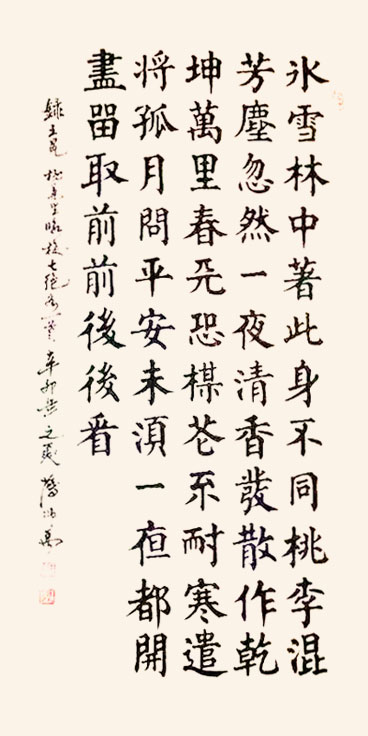 氷雪林中著此身不同桃李混
芳塵忽然一夜清香發散作乾
坤萬里春恐楳花不耐寒遣
将孤月問平安未須一夜都開
盡留取前前後後看
錄王冕七絕辛卯之